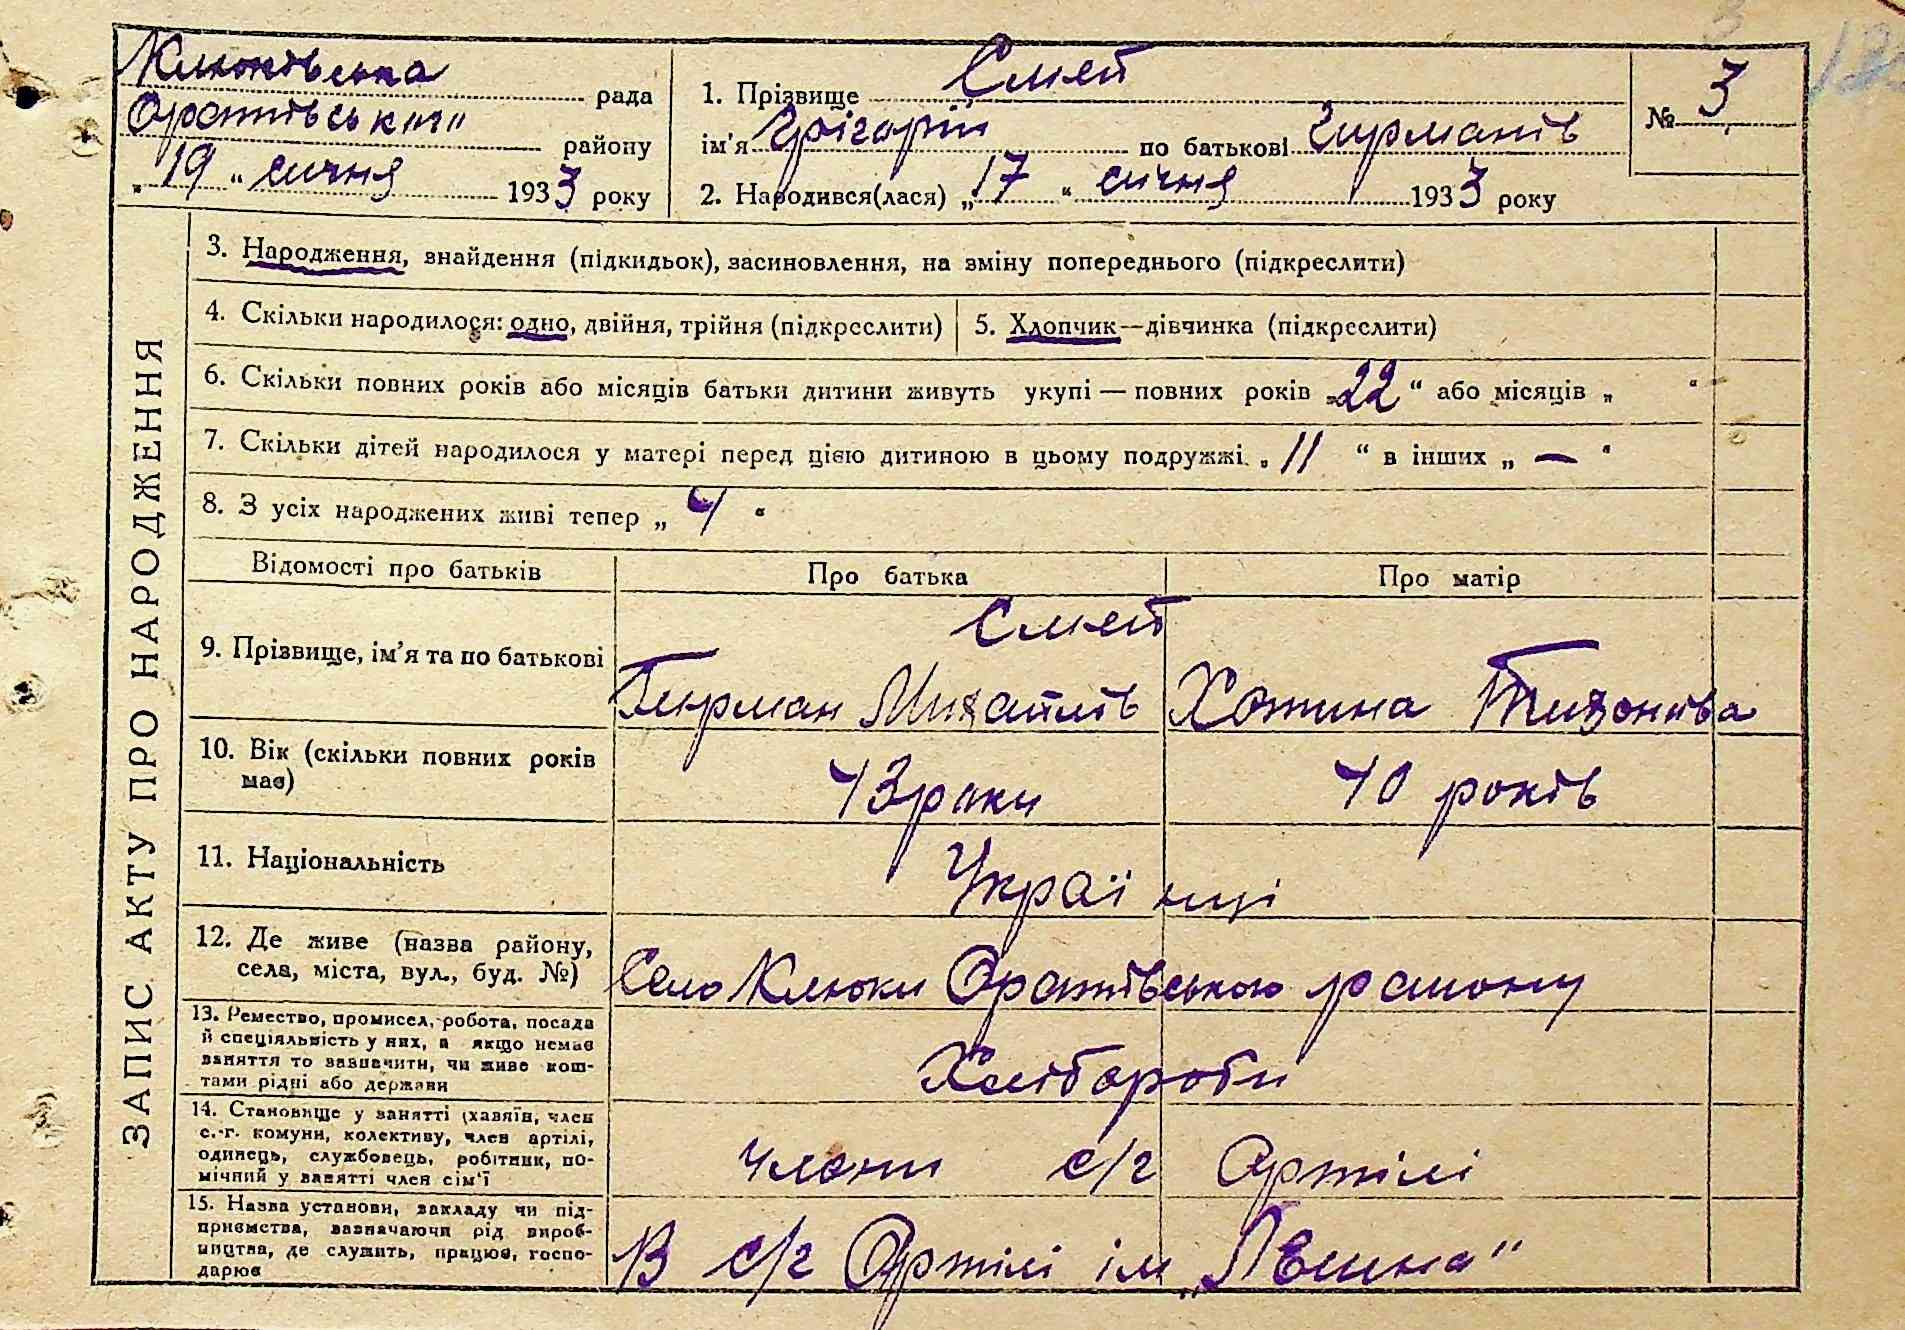 Клюківська рада
Оратівськ"г" району
„19“ січня 1933 року
1. Прізвище Смей
ім'я Грігорій по батькові Гирманів
2. Народився(лася) „17“ січня 1933 року
№ 3
ЗАПИС АКТУ ПРО НАРОДЖЕННЯ
3. Народження, знайдення (підкидьок), засиновлення, на зміну попереднього (підкреслити)
4. Скільки народилося: одно, двійня, трійня (підкреслити)
5. Хлопчик—дівчинка (підкреслити)
6. Скільки повних років або місяців батьки дитини живуть укупі — повних років „22“ або місяців „ “
7. Скільки дітей народилося у матері перед цією дитиною в цьому подружжі „11“ в інших „—“
8. З усіх народжених живі тепер „4“
Відомості про батьків
Про батька
Про матір
9. Прізвище, ім'я та по батькові
Смей
Гирман Михайлів
Хотина Тихонова
10. Вік (скільки повних років
має)
43 роки
40 років
11. Національність
Українці
12. Де живе (назва району,
села, міста, вул., буд. №)
Село Клюки Оратівського району
13. Ремество, промисел, робота, посада
й спеціяльність у них, а якщо немає
заняття то зазначити, чи живе кош-
тами рідні або держави
Хлібороби
14. Становище у занятті (хазяїн, член
с.-г. комуни, колективу, член артілі,
одинець, службовець, робітник, по-
мічний у занятті член сім'ї
члени с/г Артілі
15. Назва установи, закладу чи під-
приємства, зазначаючи рід вироб-
ництва, де служить, працює, госпо-
дарює
В с/г Артілі ім „Лєнина"